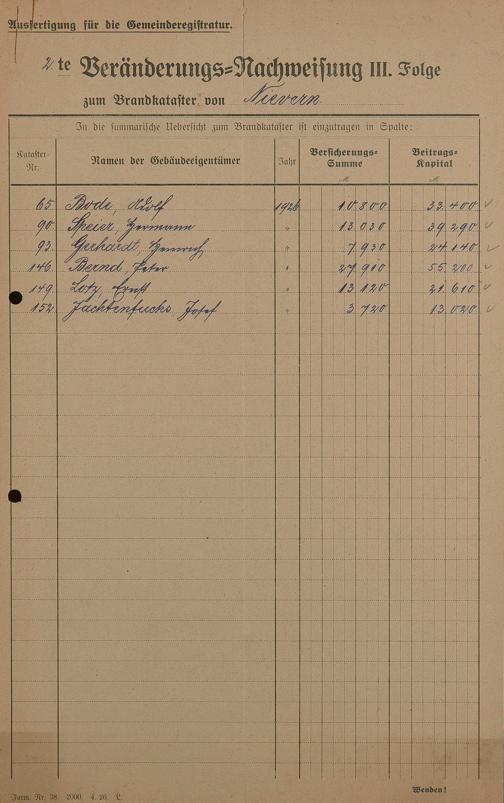 Ausfertigung für die Gemeinderegistratur.
2. te Veränderungs=Nachweisung III. Folge
zum Brandkataster von Nievern
In die summarische Uebersicht zum Brandkataster ist einzutragen in Spalte:
Kataster-Nr. Namen der Gebäudeeigentümer Jahr Versicherungs=Summe Beitrags=Kapital
M M
65 Bode, Adolf 1926 10 800 33.400 ✓
90 Speier, Hermann " 13 030 39.290 ✓
93 Gerhardt, Heinrich " 7 930 24.140 ✓
146. Bernd, Peter " 27 910 55.200 ✓
149. Lotz, Ernst " 13 120 21.610 ✓
152. Jachtenfuchs Josef " 3 720 13.020 ✓
Form. Nr. 38. 2000. 4. 26. L.
Wenden!